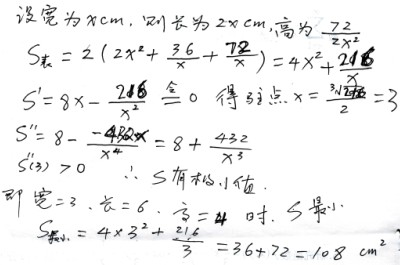 设宽为xcm, 则长为2xcm, 高为 72/2x²
S表 = 2(2x² + 36/x + 72/x) = 4x² + 216/x
S' = 8x - 216/x² ≙ 0 得驻点 x = ³√216/2 = 3
S'' = 8 - -432x/x⁴ = 8 + 432/x³
S''(3) > 0 ∴ S有极小值.
即宽=3、长=6、高=4时. S最小.
S最小 = 4×3² + 216/3 = 36+72 = 108 cm²